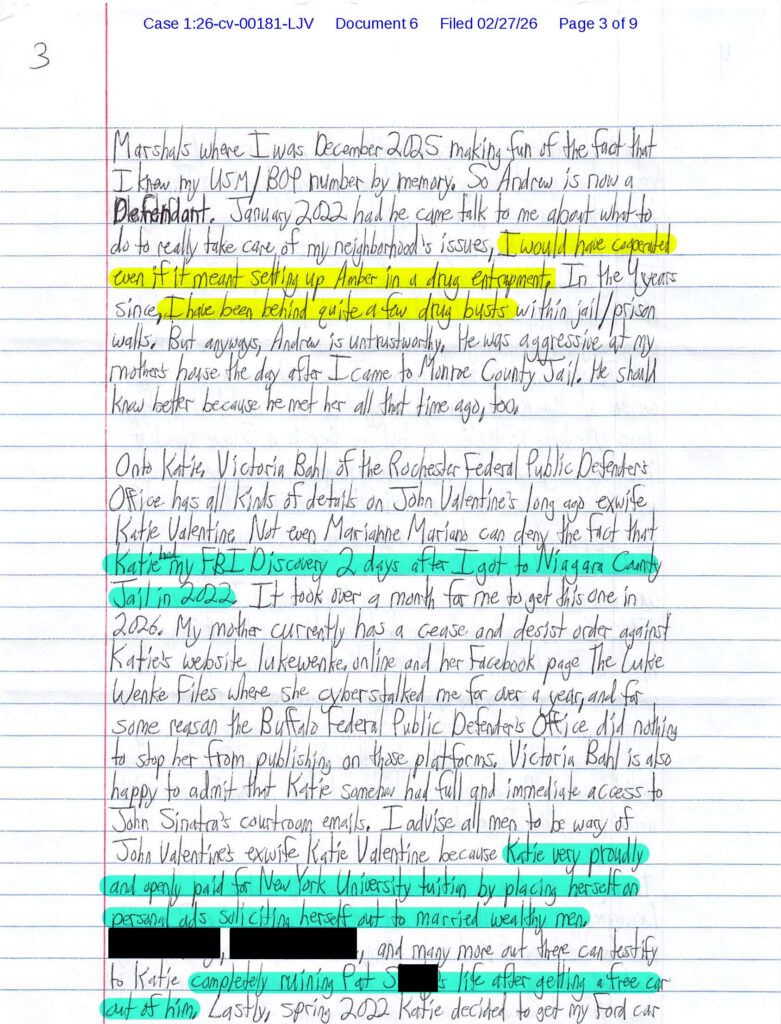 Case 1:26-cv-00181-LJV Document 6 Filed 02/27/26 Page 3 of 9
3
Marshals where I was December 2025 making fun of the fact that
I knew my USM/BOP number by memory. So Andrew is now a
Defendant. January 2022 had he came talk to me about what to
do to really take care of my neighborhood's issues, I would have cooperated
even if it meant setting up Amber in a drug entrapment. In the 4 years
since, I have been behind quite a few drug busts within jail/prison
walls. But anyways, Andrew is untrustworthy. He was aggressive at my
mother's house the day after I came to Monroe County Jail. He should
know better because he met her all that time ago, too.
Onto Katie. Victoria Bahl of the Rochester Federal Public Defenders
Office has all kinds of details on John Valentine's long ago exwife
Katie Valentine. Not even Marianne Mariano can deny the fact that
Katie had my FBI Discovery 2 days after I got to Niagara County
Jail in 2022. It took over a month for me to get this one in
2026. My mother currently has a cease and desist order against
Katie's website lukewenke.online and her Facebook page The Luke
Wenke Files where she cyberstalked me for over a year, and for
some reason the Buffalo Federal Public Defender's Office did nothing
to stop her from publishing on those platforms. Victoria Bahl is also
happy to admit that Katie somehow had full and immediate access to
John Sinatra's courtroom emails. I advise all men to be wary of
John Valentine's exwife Katie Valentine because Katie very proudly
and openly paid for New York University tuition by placing herself on
personal ads soliciting herself out to married wealthy men.
, , and many more out there can testify
to Katie completely ruining Pat S 's life after getting a free car
out of him. Lastly, spring 2022 Katie decided to get my Ford car